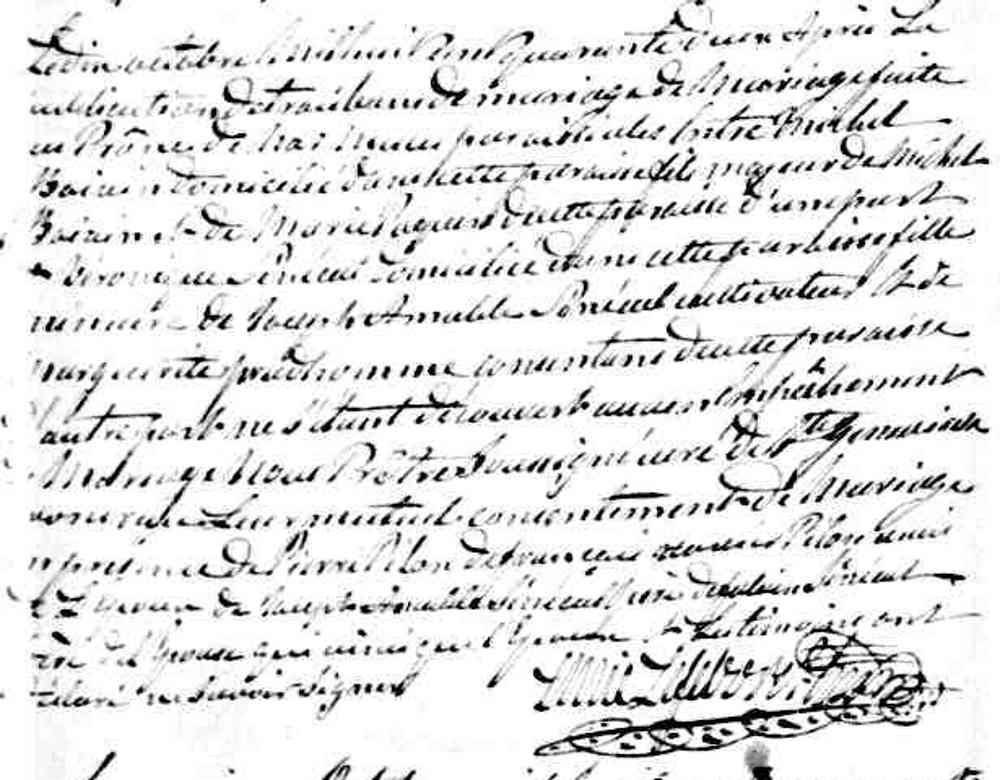 Le dix octobre mil huit cent quarante deux après La
publication de trois bans de mariage de Mariage faite
au Prône de Nos Messes paroissiales Entre Michel
domicilié dans cette paroisse fils majeur de Michel
et de Marie Paquin de cette paroisse d'une part
Véronique Sénécal domiciliée dans cette paroisse fille
mineure de Joseph Amable Sénécal cultivateur Et de
Marguerite prudhomme consentans de cette paroisse
autre part ne s'étant découvert aucun Empêchement
Mariage Nous Prêtre Soussigné curé de Ste Geneviève
avons reçu Leur mutuel consentement de Mariage
en présence de Pierre Pilon de françois Pilon amis
de L'Epoux de Joseph Amable Sénécal père de Sénécal
de L'Epouse qui ainsi que l'Epoux Et Les témoins ont
déclaré ne Savoir Signer